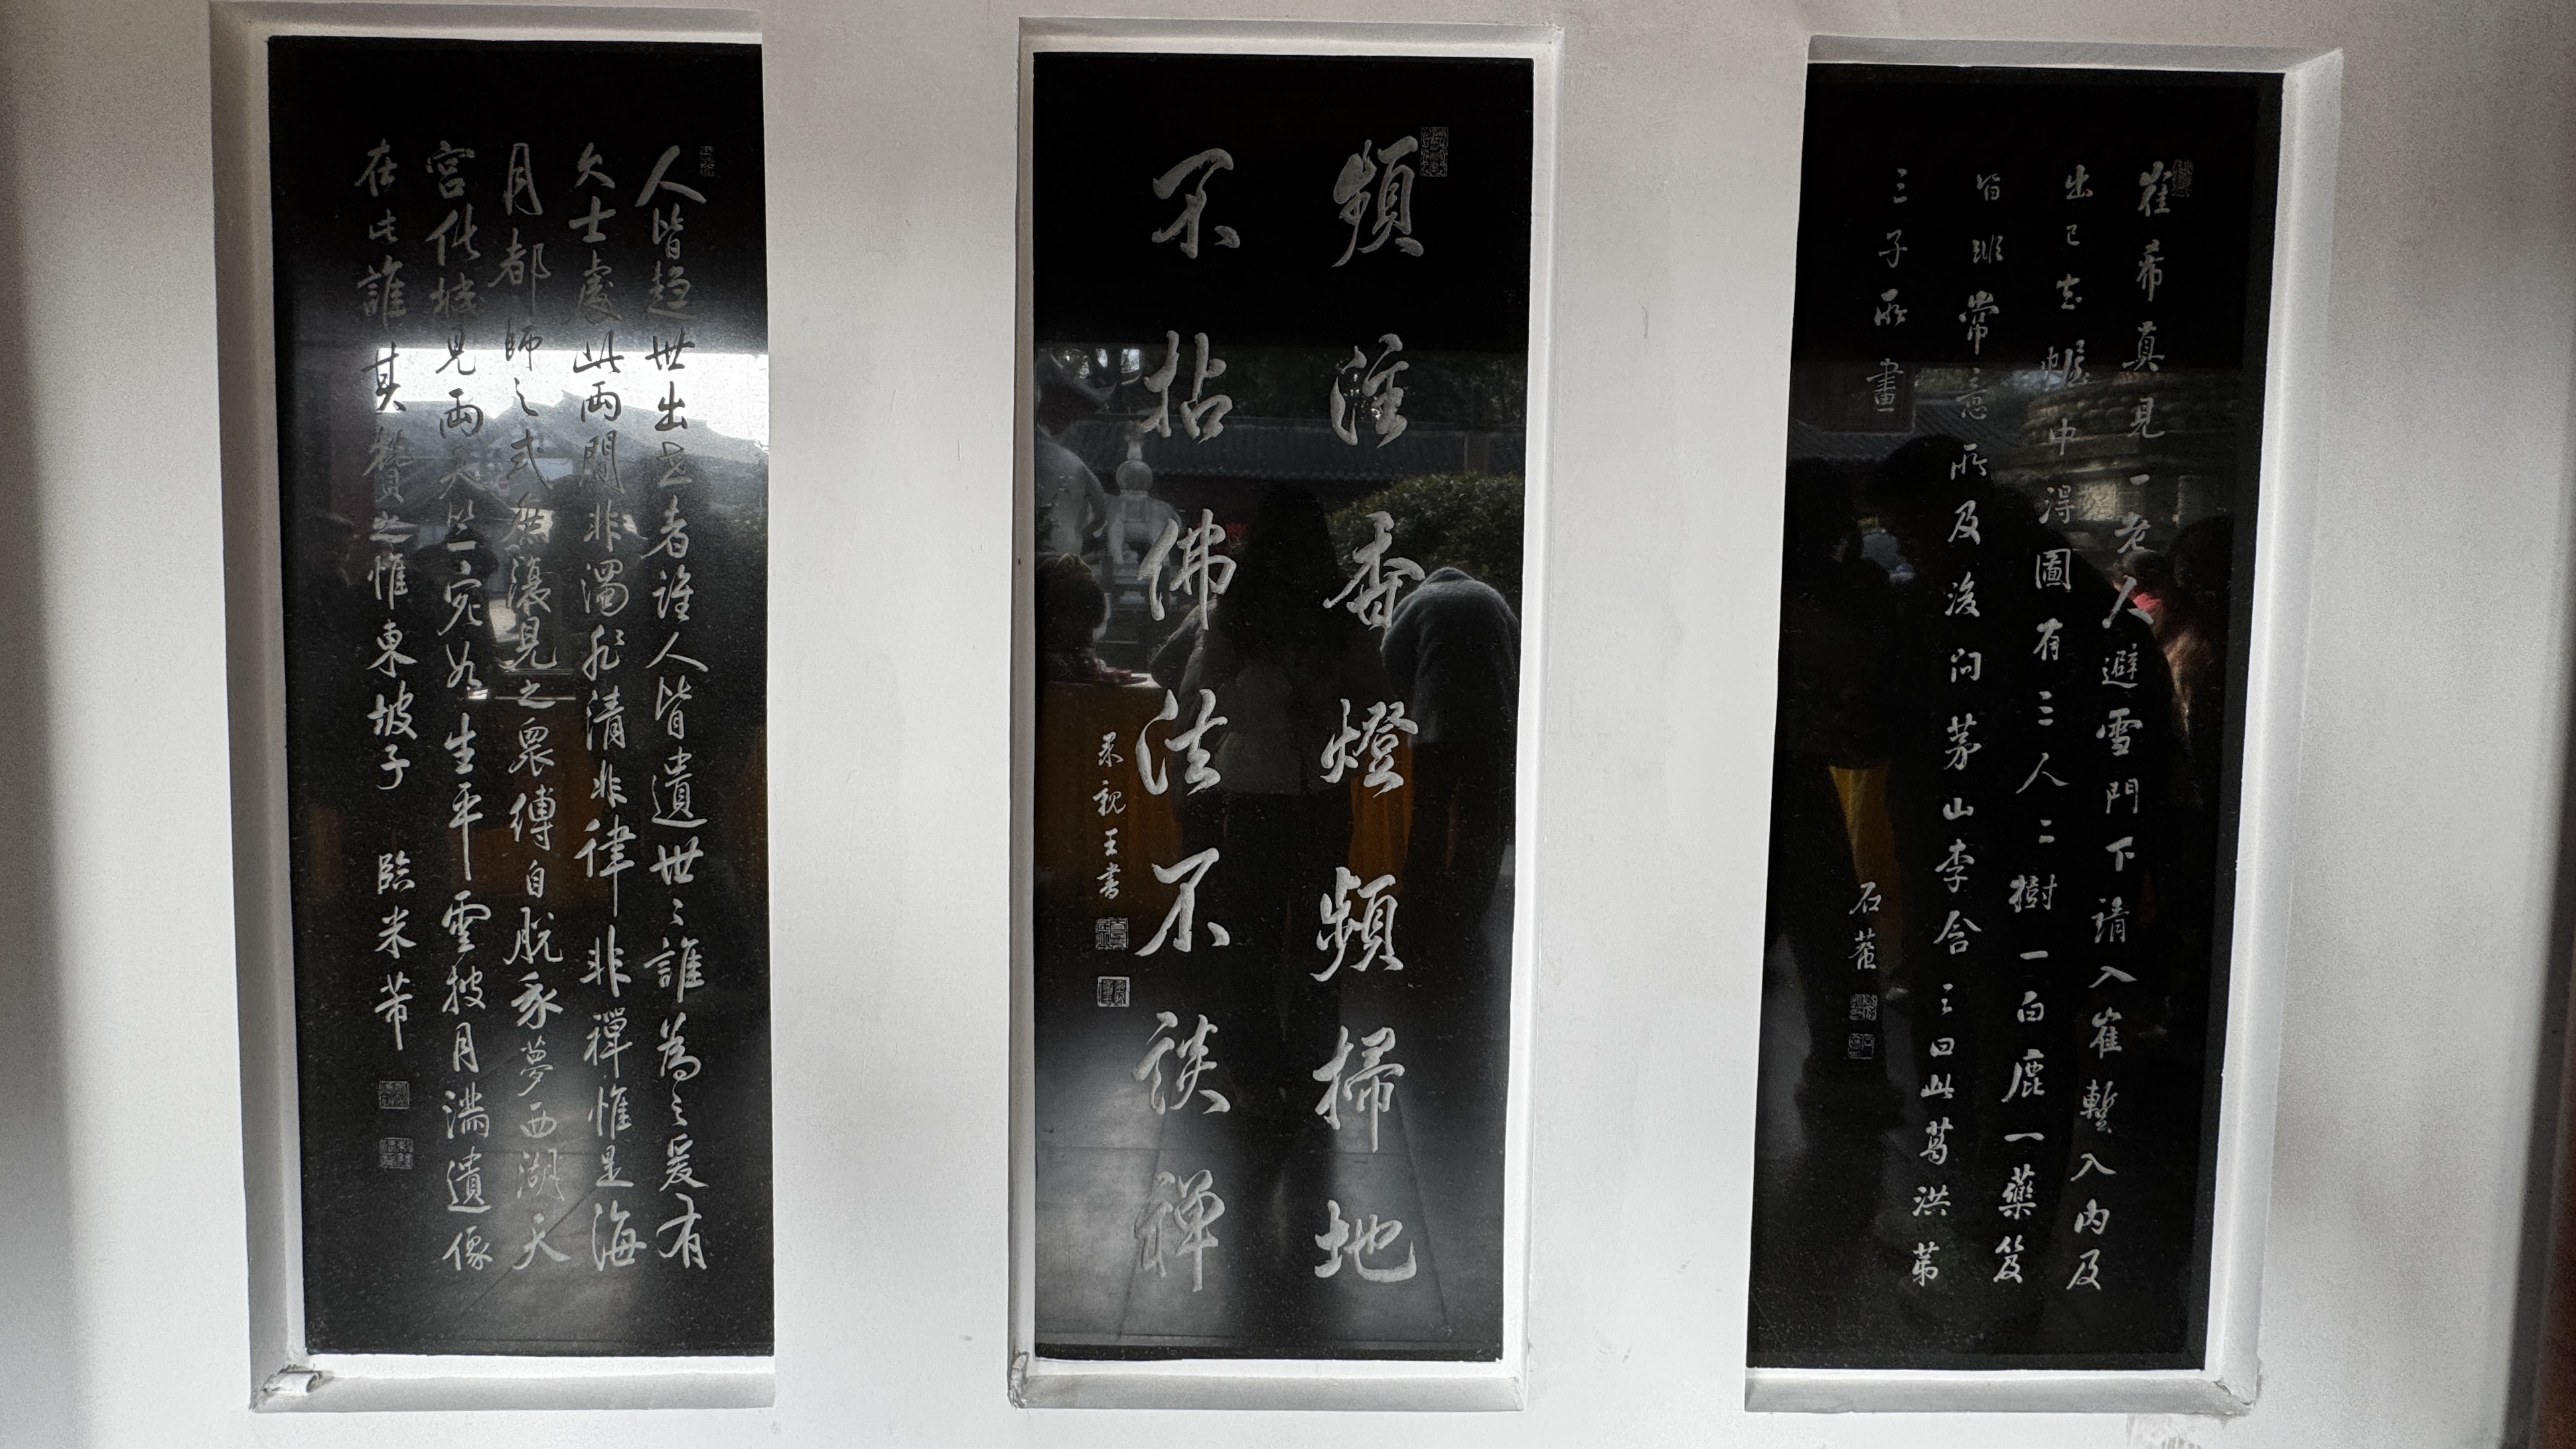 崔希真見一老人避雪門下請入崔暫入內及
出已去幄中得圖有三人二樹一白鹿一藥笈
皆非常意所及後问茅山李含三曰此葛洪第
三子所畫
石菴
頻添香燈頻掃地
不拈佛法不談禅
果親王書
人皆趨世出世者誰人皆遺世世誰為之爰有
大士處此兩間非濁非清非律非禪惟是海
月都師之式庶復見之眾縛自脱我夢西湖天
宮化城見兩天竺宛如生平雲披月滿遺像
在此誰其贊之惟東坡子 臨米芾